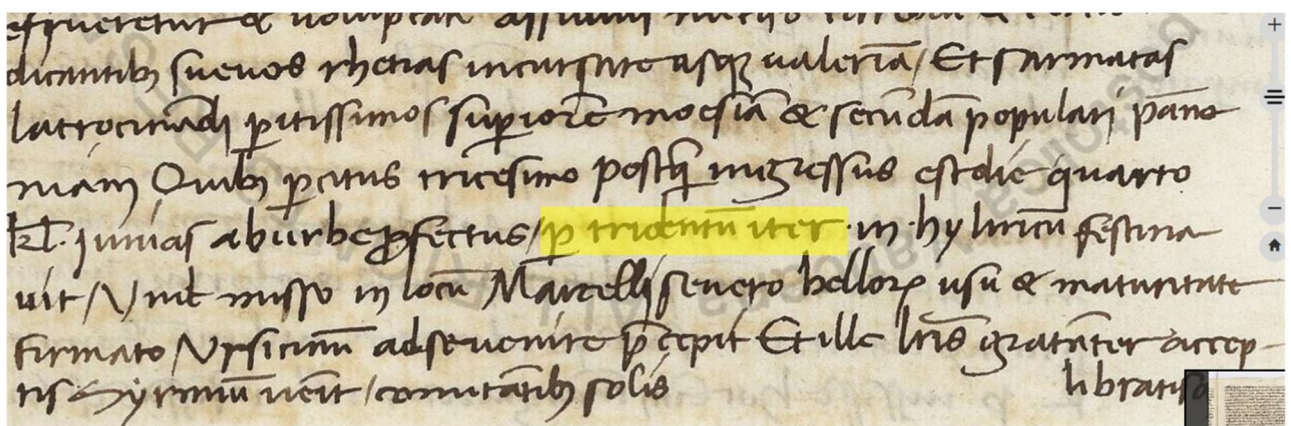 dicantibꝫ sueuos rhetias incursare asqꝫ ualeriā / Et sarmatas
latrocinādi ꝑitissimos suꝑiorē moesiā & secūdā populari pāno
niam Quibꝫ ꝑcitus tricesimo postq̄ ingressus est die quarto
kl. iunias ab urbe ꝓfectus / ꝑ tridentū iter in hyliricū festina
uit / Vnde misso in locū Marcelli seuero belloꝝ usu & maturitate
firmato / Vrsicinū ad se uenire p̄cepit Et ille lr̄is gratāter accep
tis Syrmiū uēit / comitātibꝫ solis